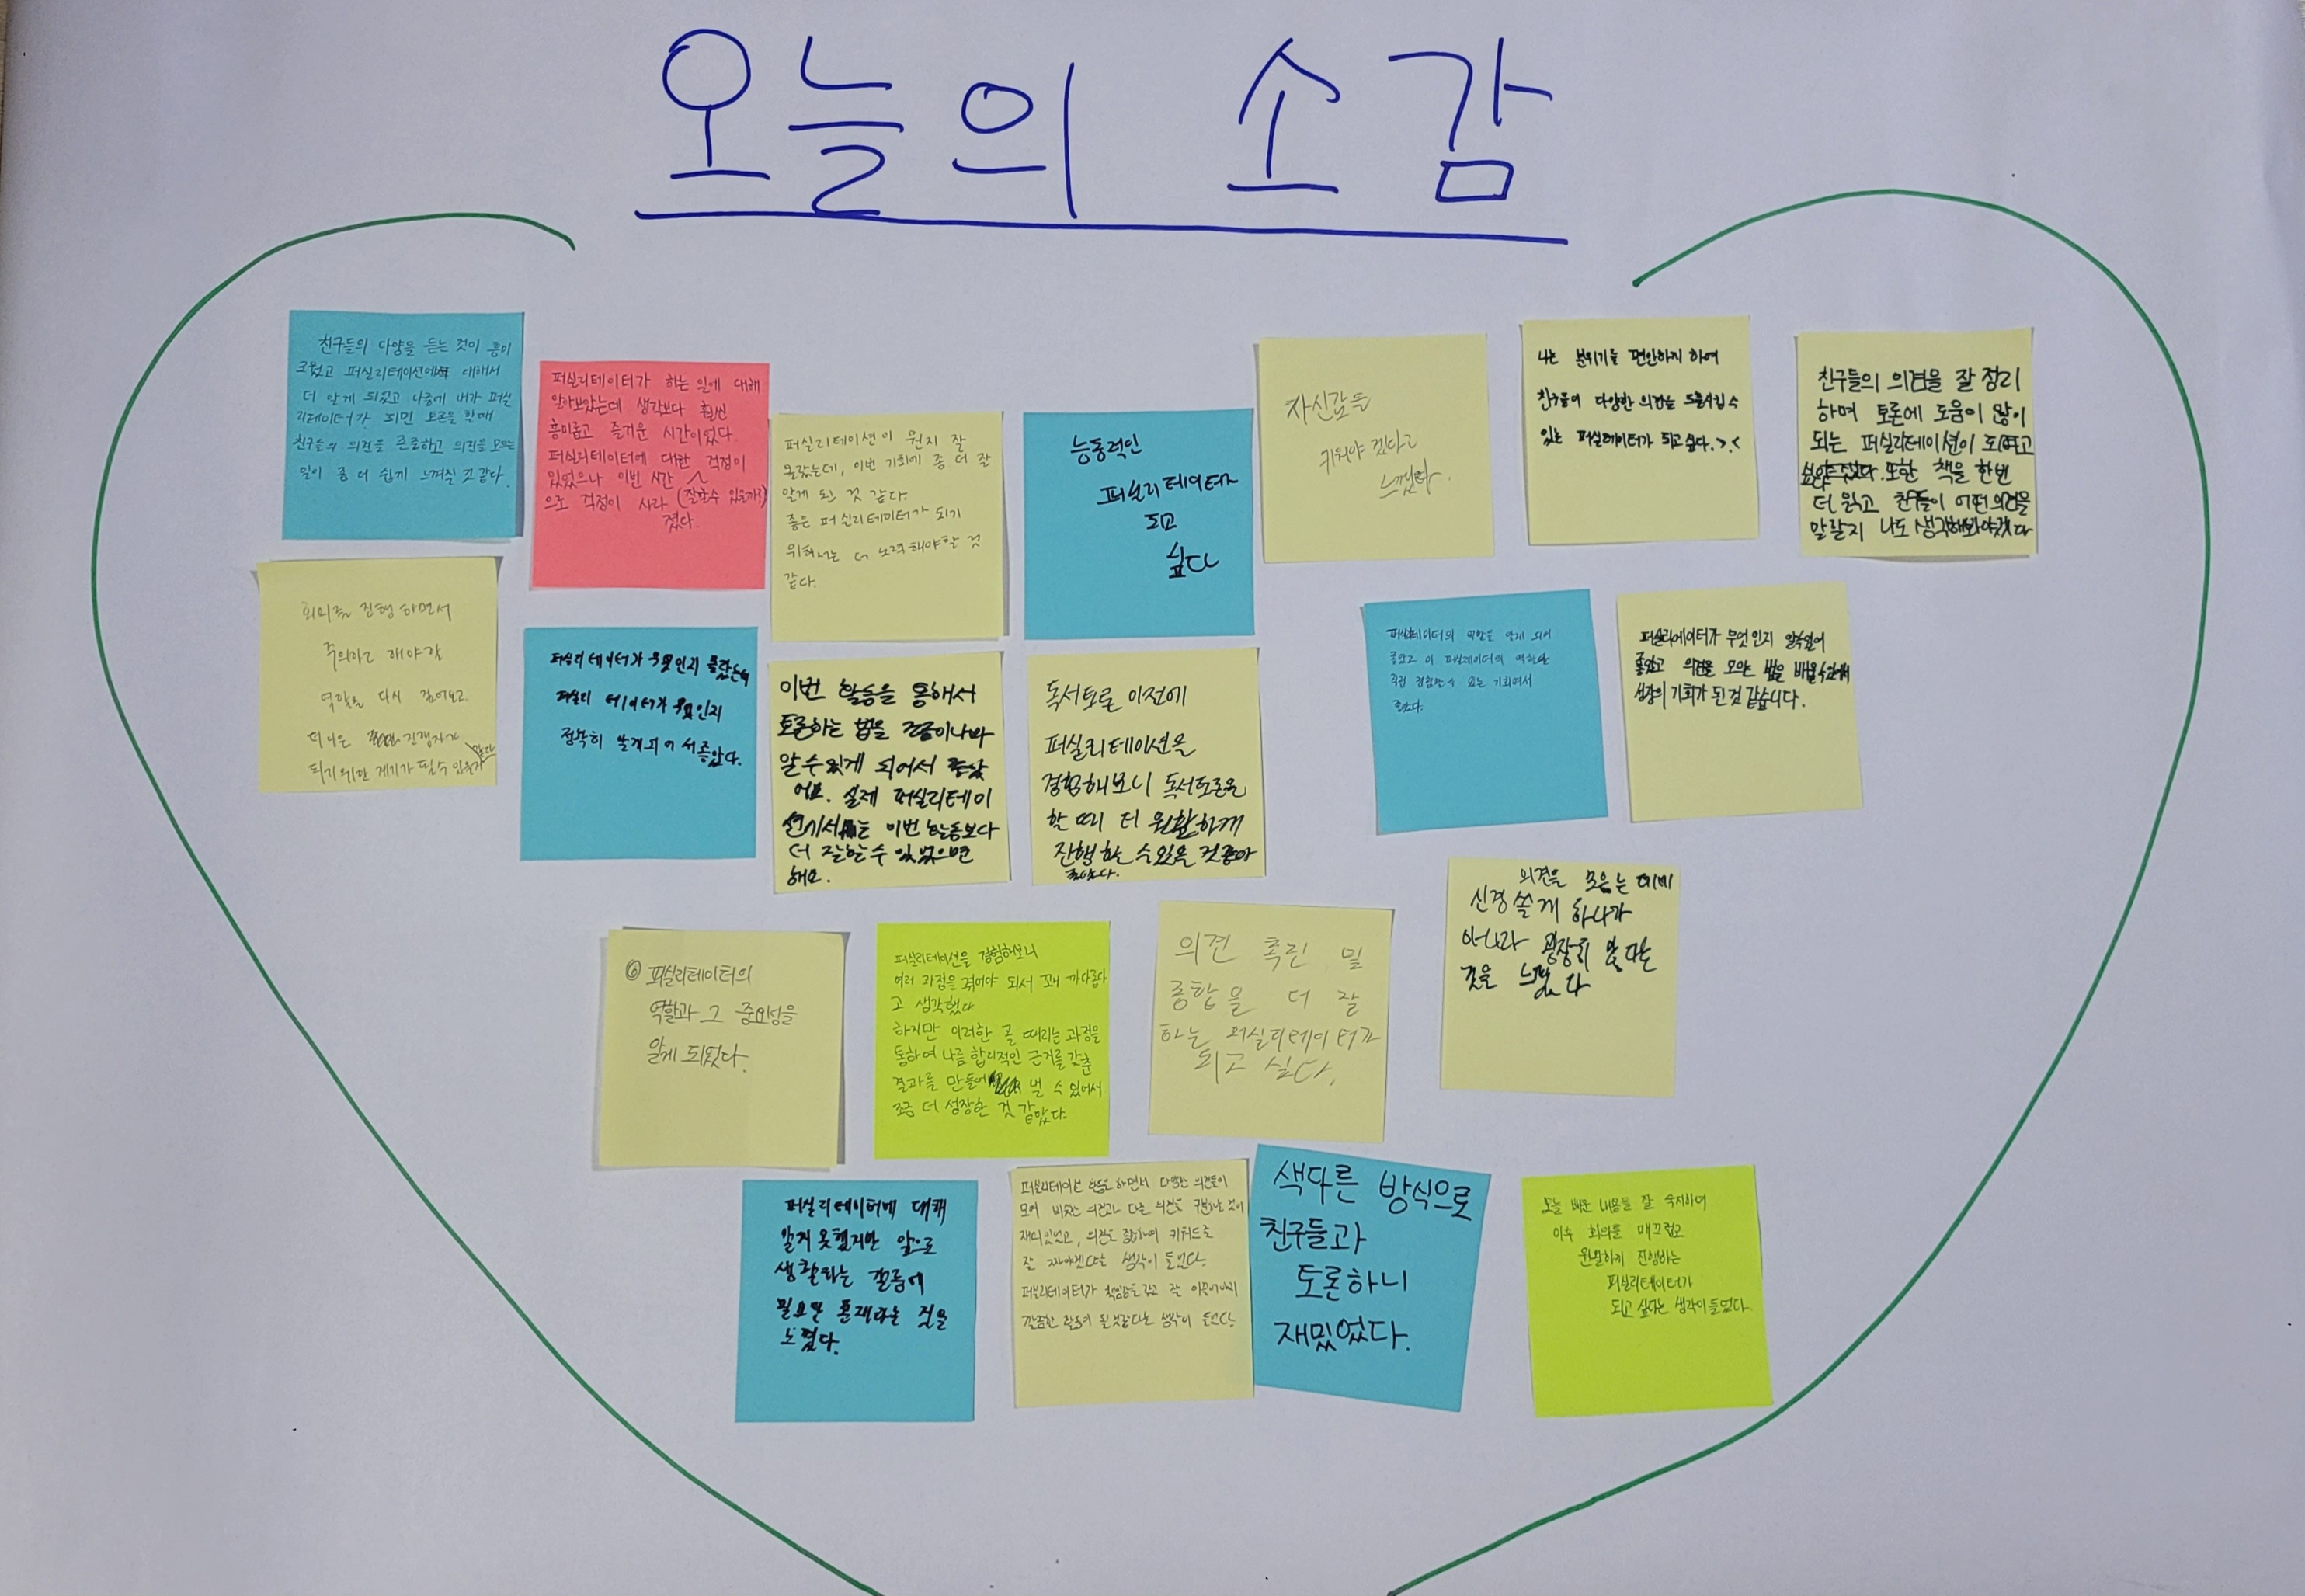 오늘의 소감
친구들의 다양을 듣는 것이 흥미
로웠고 퍼실리테이션에 대해서
더 알게 되었고 나중에 내가 퍼실
리테이터가 되면 토론을 할때
친구들의 의견을 존중하고 의견을 모으는
일이 좀 더 쉽게 느껴질 것 같다.
퍼실리테이터가 하는 일에 대해
알아보았는데 생각보다 훨씬
흥미롭고 즐거운 시간이었다.
퍼실리테이터에 대한 걱정이
있었으나 이번 시간
으로 걱정이 사라 (잘할수 있을까?)
졌다.
퍼실리테이션이 뭔지 잘
몰랐는데, 이번 기회에 좀 더 잘
알게 된 것 같다.
좋은 퍼실리테이터가 되기
위해서는 더 노력해야할 것
같다.
능동적인
퍼실리테이터
되고
싶다
자신감을
키워야 겠다고
느꼈다.
나는 분위기를 편안하게 하여
친구들이 다양한 의견을 도출시킬 수
있는 퍼실리테이터가 되고 싶다. >.<
친구들의 의견을 잘 정리
하며 토론에 도움이 많이
되는 퍼실리테이션이 되려고
싶어졌다. 또한 책을 한번
더 읽고 친구들이 어떤 의견을
말할지 나도 생각해봐야겠다
회의를 진행 하면서
주의하고 해야할
역할을 다시 짚어보고.
더 나은 진행자가
되기 위한 계기가 될수 있을거
같다
퍼실리테이터가 무엇인지 몰랐는데
퍼실리 테이터가 무엇인지
정확히 알게되어서 좋았다.
이번 활동을 통해서
토론하는 법을 조금이나마
알 수 있게 되어서 좋았
어요. 실제 퍼실리테이
션에서는 이번 활동보다
더 잘할 수 있었으면
해요.
독서토론 이전에
퍼실리테이션을
경험해보니 독서토론을
할 때 더 원활하게
진행할 수 있을 것같아
좋았다.
퍼실리테이터의 역할을 알게 되어
좋았고 이 퍼실리테이터의 역할을
직접 경험할 수 있는 기회여서
좋았다.
퍼실리테이터가 무엇인지 알 수 있어
좋았고 의견을 모으는 법을 배울 수 있어
성장의 기회가 된 것 같습니다.
⑥ 퍼실리테이터의
역할과 그 중요성을
알게 되었다.
퍼실리테이션을 경험해보니
여러 과정을 겪어야 되서 꽤 까다롭다
고 생각했다
하지만 이러한 골 때리는 과정을
통하여 나름 합리적인 근거를 갖춘
결과를 만들어 낼 수 있어서
조금 더 성장한 것 같았다.
의견 촉진 및
종합을 더 잘
하는 퍼실리테이터가
되고 싶다.
의견을 모으는 데에
신경 쓸게 하나가
아니라 굉장히 많다는
것을 느꼈다
퍼실리테이터에 대해
알지 못했지만 앞으로
생활하는 데에
필요한 존재라는 것을
느꼈다.
퍼실리테이션 활동을 하면서 다양한 의견들이
모여 비슷한 의견과 다른 의견을 구분하는 것이
재미있었고, 의견을 종합하여 키워드로
잘 짜야겠다는 생각이 들었다.
퍼실리테이터가 책임감을 갖고 잘 이끌어내야
된 것같다는 생각이 들었다.
색다른 방식으로
친구들과
토론하니
재밌었다.
오늘 배운 내용을 잘 숙지하여
이후 회의를 매끄럽고
원활하게 진행하는
퍼실리테이터가
되고 싶다는 생각이 들었다.